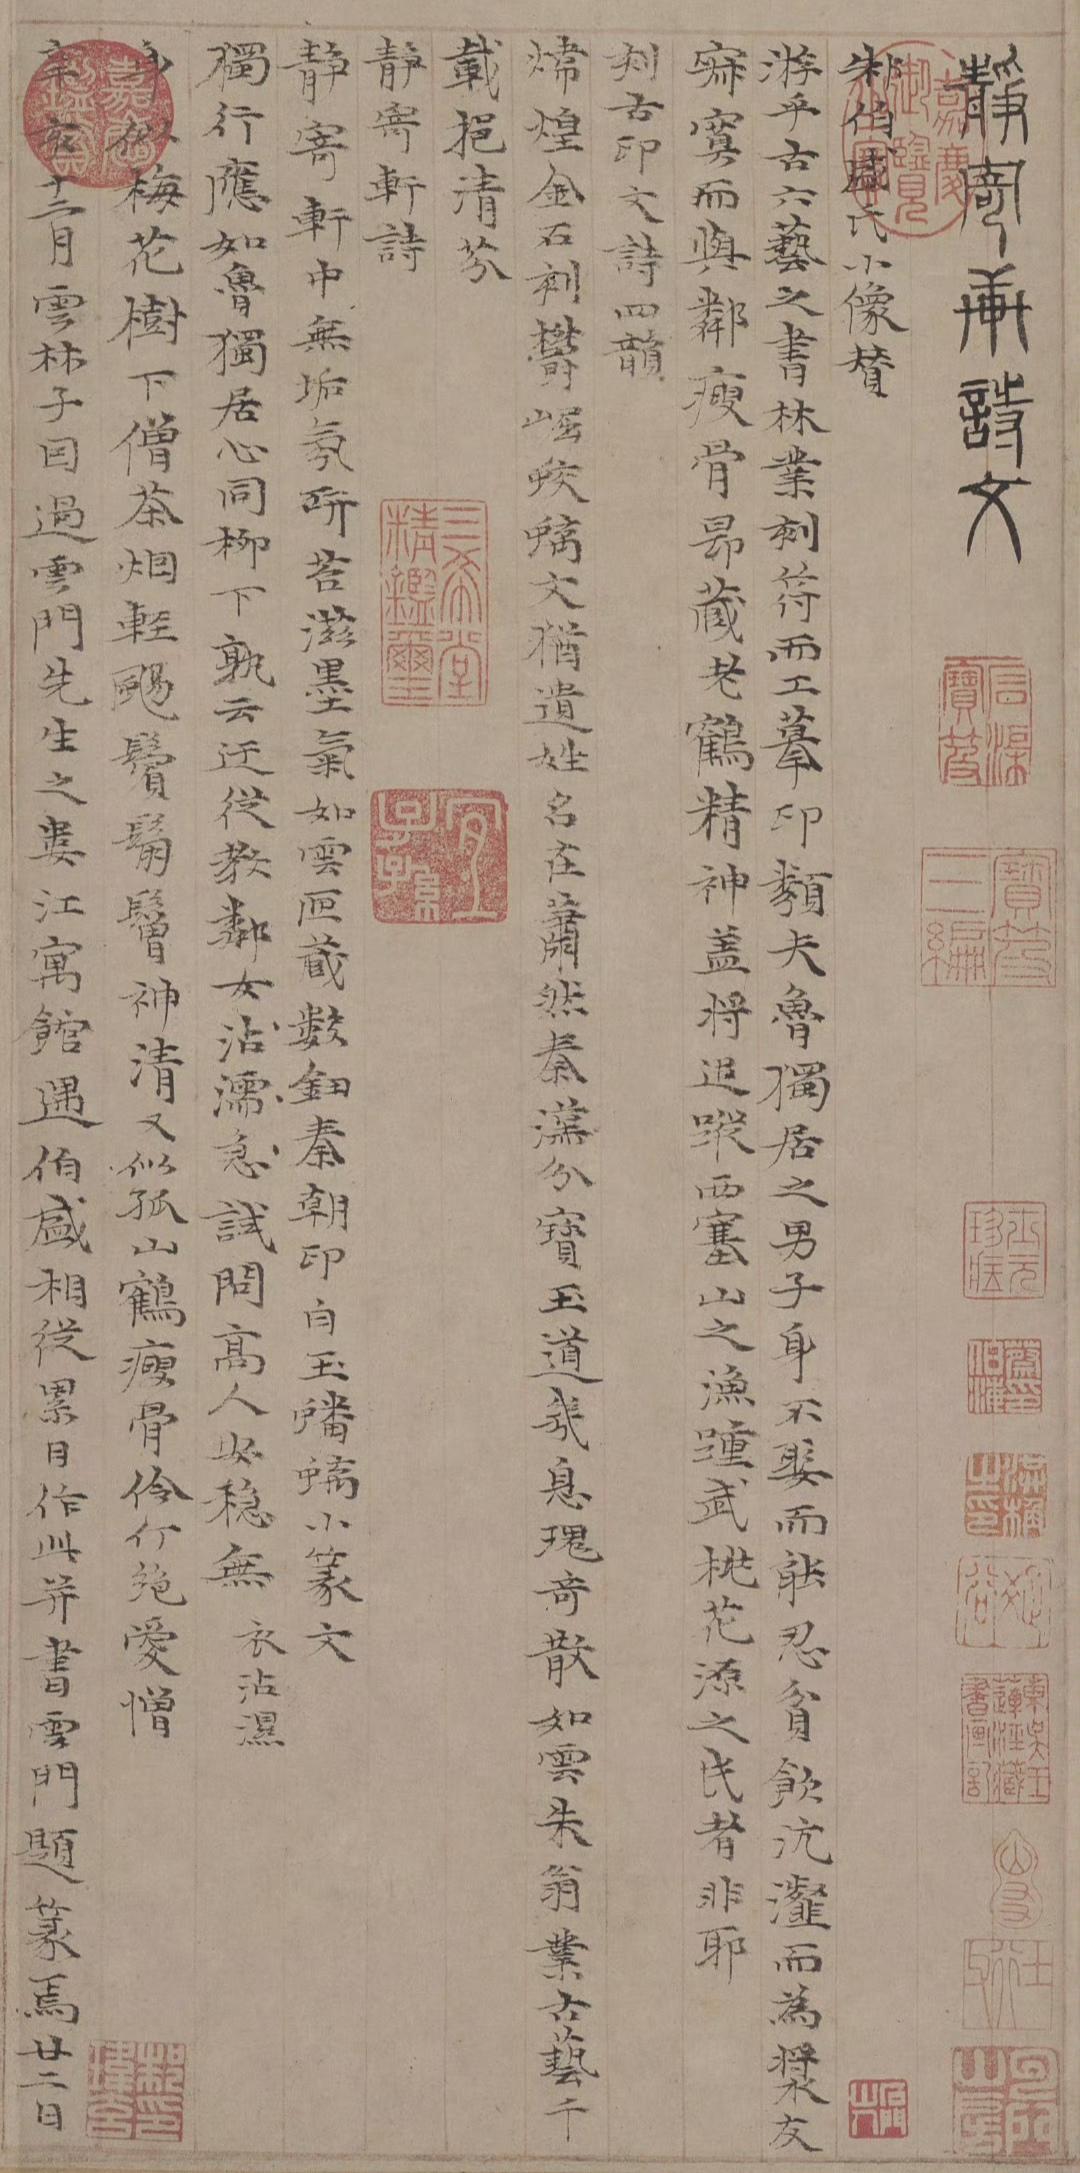 靜寄軒詩文
朱伯盛氏小像贊
游乎古六藝之書林業刻符而工摹印類夫魯獨居之男子身不娶而能忍貧飲沆瀣而為漿友
寂寞而與鄰瘦骨昂藏老鶴精神蓋將追蹤西塞山之漁踵武桃花源之民者非耶
刻古印文詩四韻
煒煌金石刻欝崛蛟螭文猶遺姓名在蕭然秦漢分寶玉道我息瑰奇散如雲朱翁業古藝千
載挹清芬
靜寄軒詩
靜寄軒中無垢氛研苔滋墨氣如雲匝藏數鈕秦朝印白玉蟠螭小篆文
獨行應如魯獨居心同柳下孰云迂從教鄰女沾濡急試問高人安穩無
衣沾濕
梅花樹下僧茶烟輕颺鬢鬅鬙神清又似孤山鶴瘦骨伶仃絶愛憎
辛亥十二月雲林子因過雲門先生之婁江寓館遇伯盛相從累日作此并書雲門題篆焉廿二日
三希堂精鑑璽
宜子孫
石渠寶笈
寶笈三編
嘉慶御覽之寶
嘉慶鑑賞